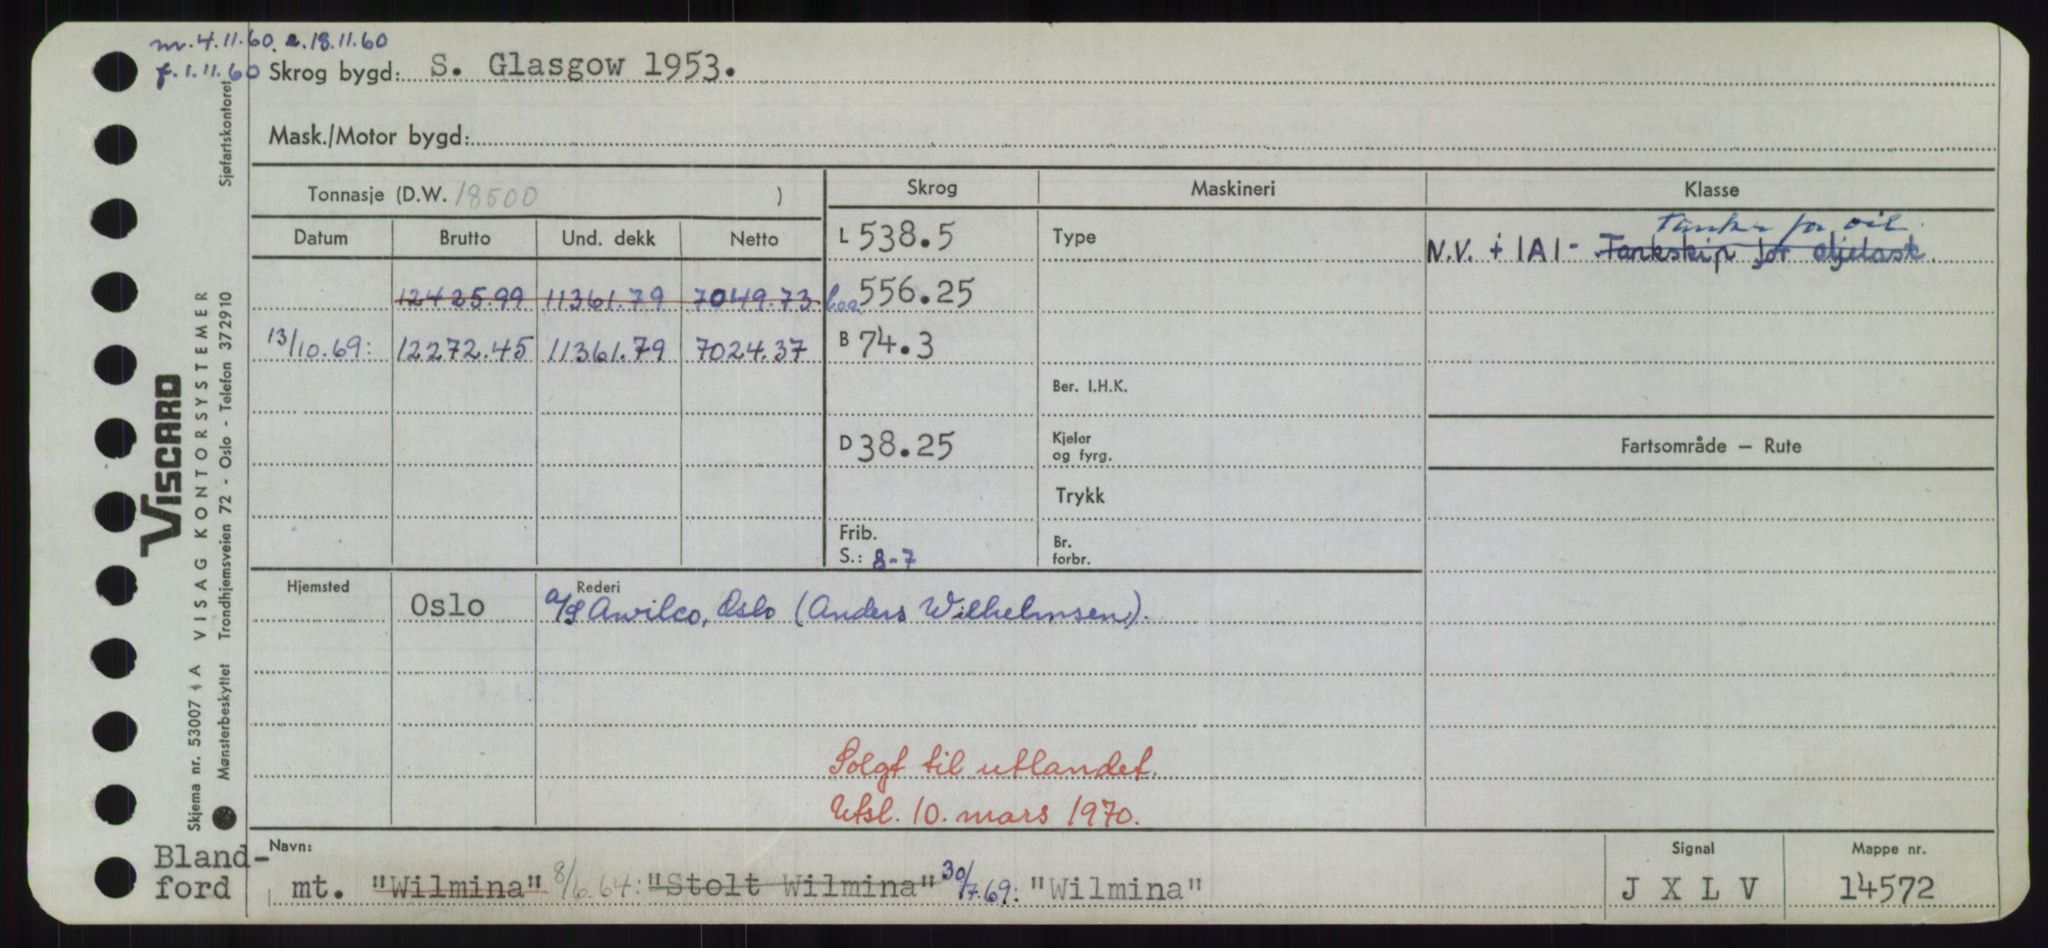 m. 4.11.60. e. 18.11.60
f. 1.11.60 Skrog bygd: S. Glasgow 1953.
Mask./Motor bygd:
Tonnasje (D.W. 18500 )
Skrog Maskineri Klasse
Datum Brutto Und. dekk Netto
L 538.5 Type
Tanker for oil.
N.V. + 1A1 - Tankskip for oljelast.
12425.99 11361.79 7049.73 loa 556.25
13/10.69: 12272.45 11361.79 7024.37 B 74.3
Ber. I.H.K.
D 38.25 Kjeler og fyrg.
Fartsområde — Rute
Trykk
Frib.
S.: 8-7 Br. forbr.
Hjemsted Oslo Rederi A/S Awilco, Oslo (Anders Wilhelmsen).
Solgt til utlandet.
Utsl. 10. mars 1970.
Navn: Signal Mappe nr.
Bland-
ford mt. "Wilmina" 8/6.64: "Stolt Wilmina" 30/7.69: "Wilmina" J X L V 14572
Viscard
VISAG KONTORSYSTEMER
Sjøfartskontoret
Skjema nr. 53007 A
Mønsterbeskyttet Trondhjemsveien 72 - Oslo - Telefon 372910